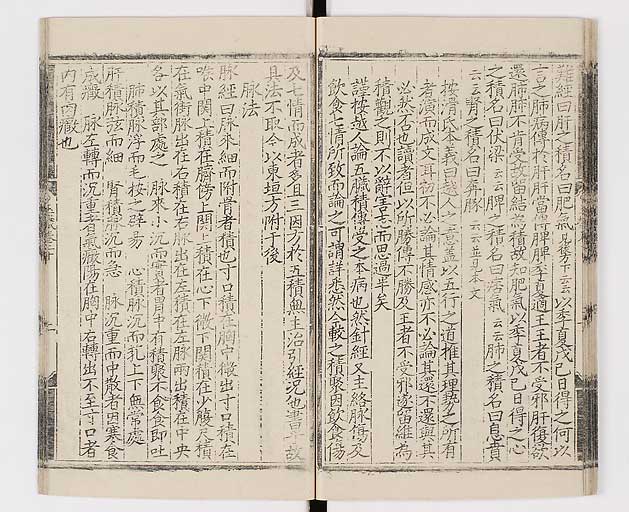 難經曰肝之積名曰肥氣見舊下云云以季夏戊己日得之何以
言之肺病傳於肝肝當傳脾脾季夏適王王者不受邪肝復欲
還肺肺不肯受故留結為積故知肥氣以季夏戊己日得之心
之積名曰伏梁云云脾之積名曰痞氣云云肺之積名曰息賁
云云腎之積名曰奔豚云云並見本文
按滑氏本義曰越人之意蓋以五行之道推其理勢之所有
者演而成文耳初不必論其情感亦不必論其還不還與其
必然否也讀者但以所勝傳不勝及王者不受邪遂留雖為
積觀之則不以辭害志而思過半矣
謹按越人論五臟積傳受之本病也然針經又主絡脉傷及
飲食七情所致而論之可謂詳悉然今較之積聚因飲食傷
及七情而成者多且三因方於五積無主治引經況他書乎故
其法不取今以東垣方附于後
脉法
脉經曰脉來細而附骨者積也寸口積在胸中微出寸口積在
喉中關上積在臍傍上關上積在心下微下關積在少腹尺積
在氣街脉出在右積在右脉出在左積在左脉兩出積在中央
各以其部處之 脉來小沉而實者胃中有積聚不食食即吐
肺積脉浮而毛按之辟易 心積脉沉而芤上下無常處
肝積脉弦而細 腎積脉沉而急 脉沉重而中散者因寒食
成癥 脉左轉而沉重者氣癥陽在胸中右轉出不至寸口者
內有肉癥也